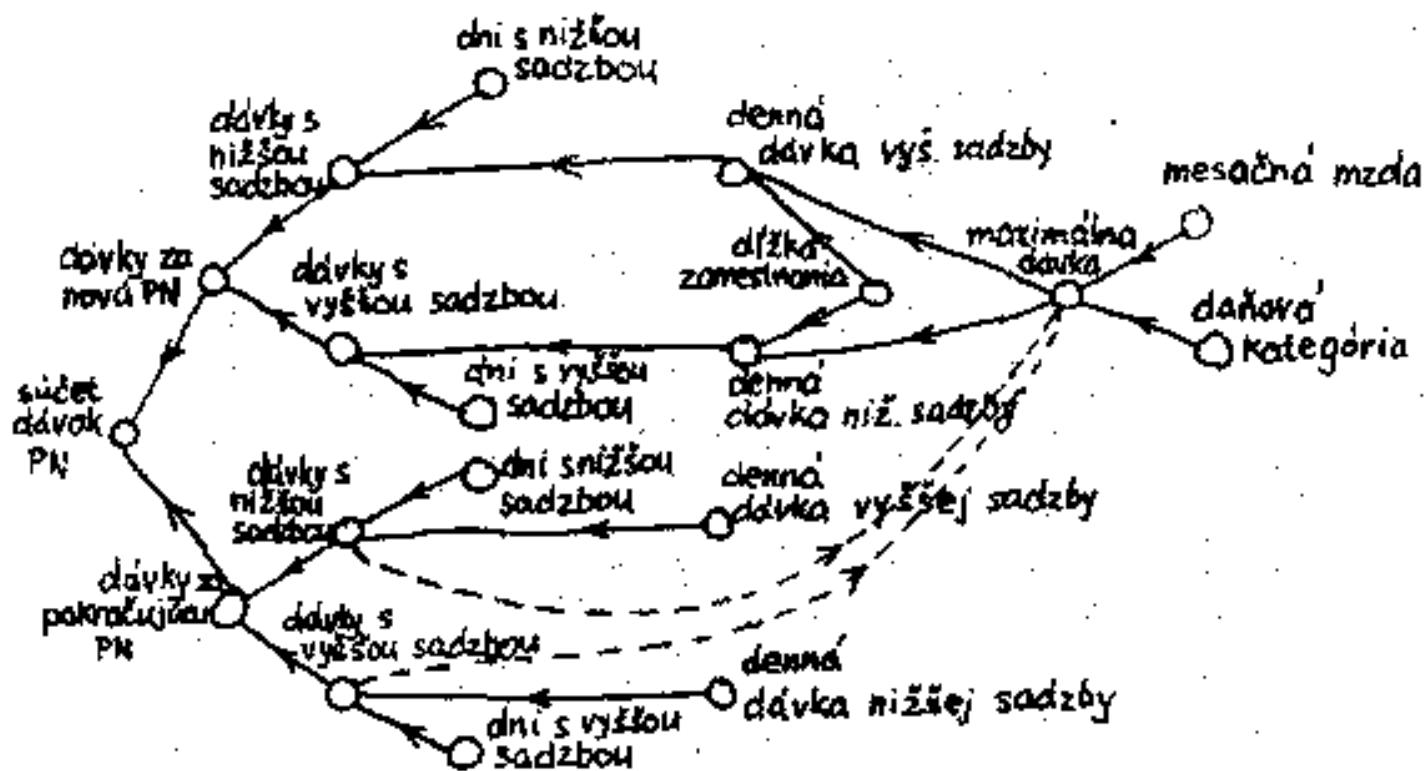 dni s nižšou
sadzbou
dávky s
nižšou
sadzbou
denná
dávka vyš. sadzby
mesačná mzda
maximálna
dávka
dĺžka
zamestnania
dávky za
nová PN
dávky s
vyššou sadzbou
daňová
kategória
dni s vyššou
sadzbou
denná
dávka niž. sadzby
súčet
dávok
PN
dávky s
nižšou
sadzbou
dni s nižšou
sadzbou
denná
dávka vyššej sadzby
dávky
PN
dávky s
vyššou sadzbou
denná
dávka nižšej sadzby
dni s vyššou
sadzbou